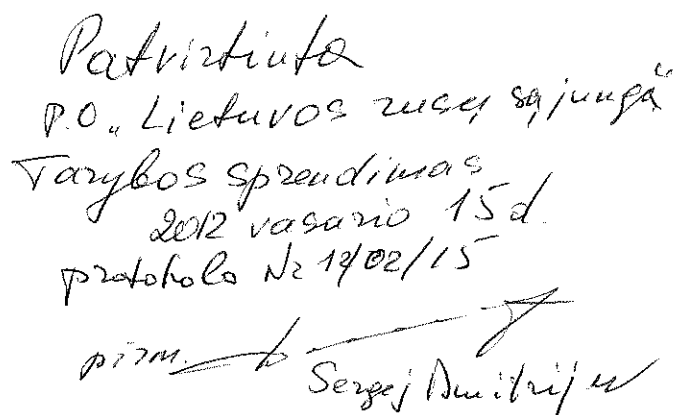 Patvirtinta
P.O. „Lietuvos rusų sąjunga“
Tarybos sprendimas
2012 vasario 15 d.
protokolo Nr 12/02/15
pirm.
Sergej Dmitrijev